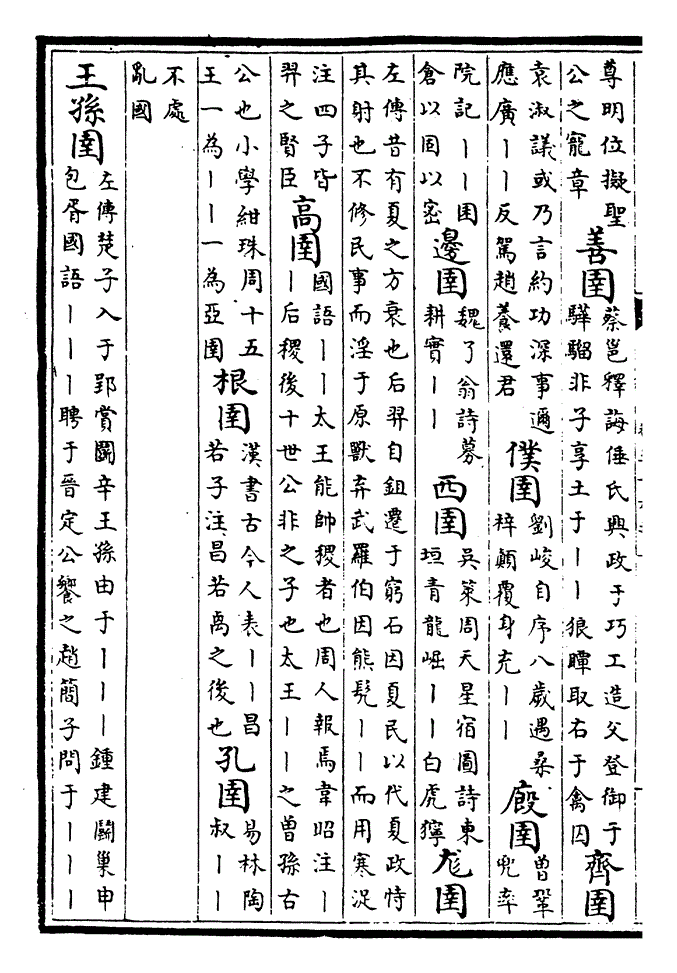 尊明位擬聖
公之寵章
善圉
蔡邕釋誨倕氏興政于巧工造父登御于
驊騮非子享土于丨丨狼瞫取右于禽囚
齊圉
袁淑議或乃言約功深事邇
應廣丨丨反駕趙養還君
僕圉
劉峻自序八歲遇桑
梓顛覆身充丨丨
廄圉
曾鞏
兜率
院記丨丨囷
倉以固以密
邊圉
魏了翁詩募
耕實丨丨
西圉
吳萊周天星宿圖詩東
垣青龍崛丨丨白虎獰
尨圉
左傳昔有夏之方衰也后羿自鉏遷于窮石因夏民以代夏政恃
其射也不修民事而淫于原獸弃武羅伯因熊髡丨丨而用寒浞
注四子皆
羿之賢臣
高圉
國語丨丨太王能帥稷者也周人報焉韋昭注丨
丨后稷後十世公非之子也太王丨丨之曾孫古
公也小學紺珠周十五
王一為丨丨一為亞圉
根圉
漢書古今人表丨丨昌
若子注昌若禼之後也
孔圉
易林陶
叔丨丨
不處
亂國
王孫圉
左傳楚子入于郢賞鬭辛王孫由于丨丨丨鍾建鬭巢申
包胥國語丨丨丨聘于晉定公饗之趙簡子問于丨丨丨